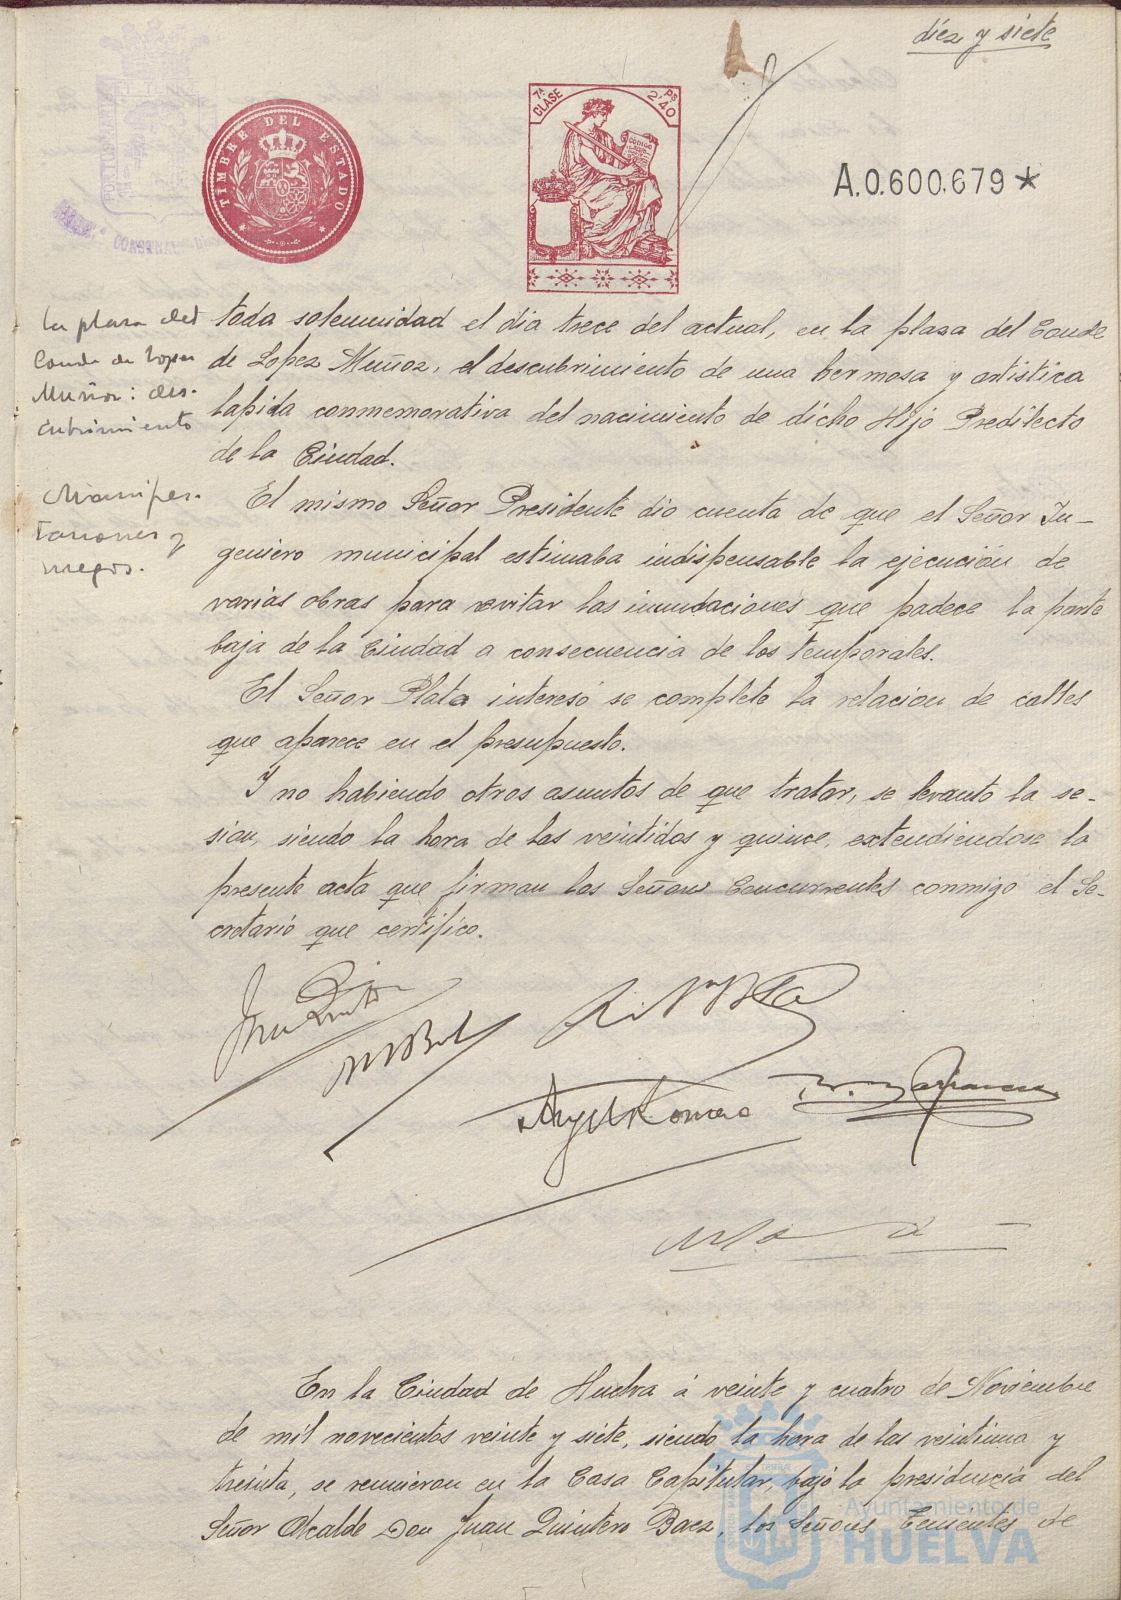 diez y siete
TIMBRE DEL ESTADO
7ª CLASE
Ps 2'40
CODIGO
A.0.600.679 *
la plaza del
Conde de Lopez
Muñoz: des-
cubrimiento
toda solemnidad el dia trece del actual, en la plaza del Conde
de Lopez Muñoz, el descubrimiento de una hermosa y artistica
lapida conmemorativa del nacimiento de dicho Hijo Predilecto
de la Ciudad.
Manifes-
taciones y
ruegos.
El mismo Señor Presidente dio cuenta de que el Señor In-
geniero municipal estimaba indispensable la ejecución de
varias obras para evitar las inundaciones que padece la parte
baja de la Ciudad a consecuencia de los temporales.
El Señor Plata interesó se complete la relacion de calles
que aparece en el presupuesto.
Y no habiendo otros asuntos de que tratar, se levanto la se-
sion, siendo la hora de las veintidos y quince, extendiendose la
presente acta que firman los Señores Concurrentes conmigo el Se-
cretario que certifico.
Angel Romero
En la Ciudad de Huelva á veinte y cuatro de Noviembre
de mil novecientos veinte y siete, siendo la hora de las veintiuna y
treinta, se reunieron en la Casa Capitular, bajo la presidencia del
Señor Alcalde Don Juan Quintero Baez, los Señores Tenientes de
Ayuntamiento de
HUELVA